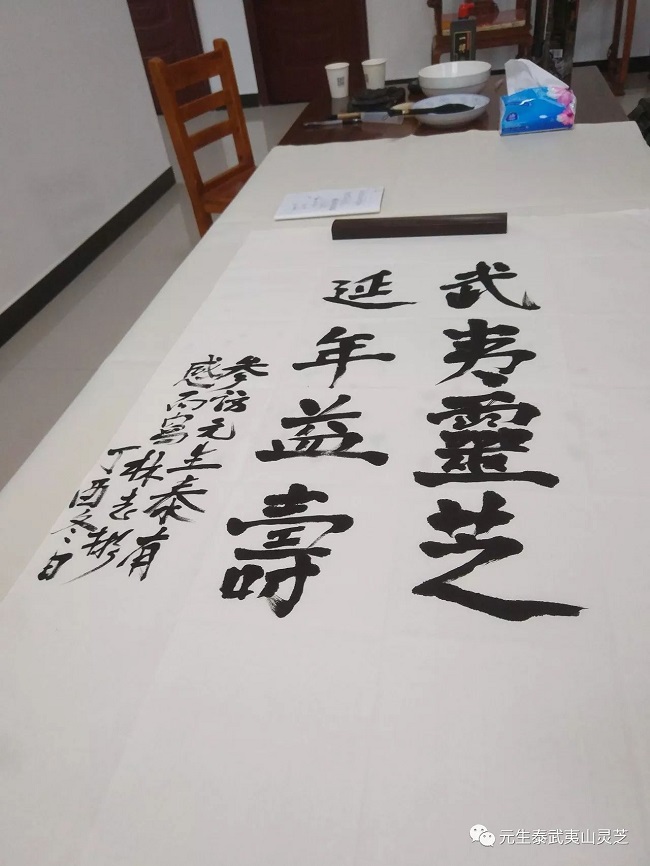 武夷靈芝
延年益壽
参访元生泰有
感而写林志彬
丁酉冬日
元生泰武夷山灵芝